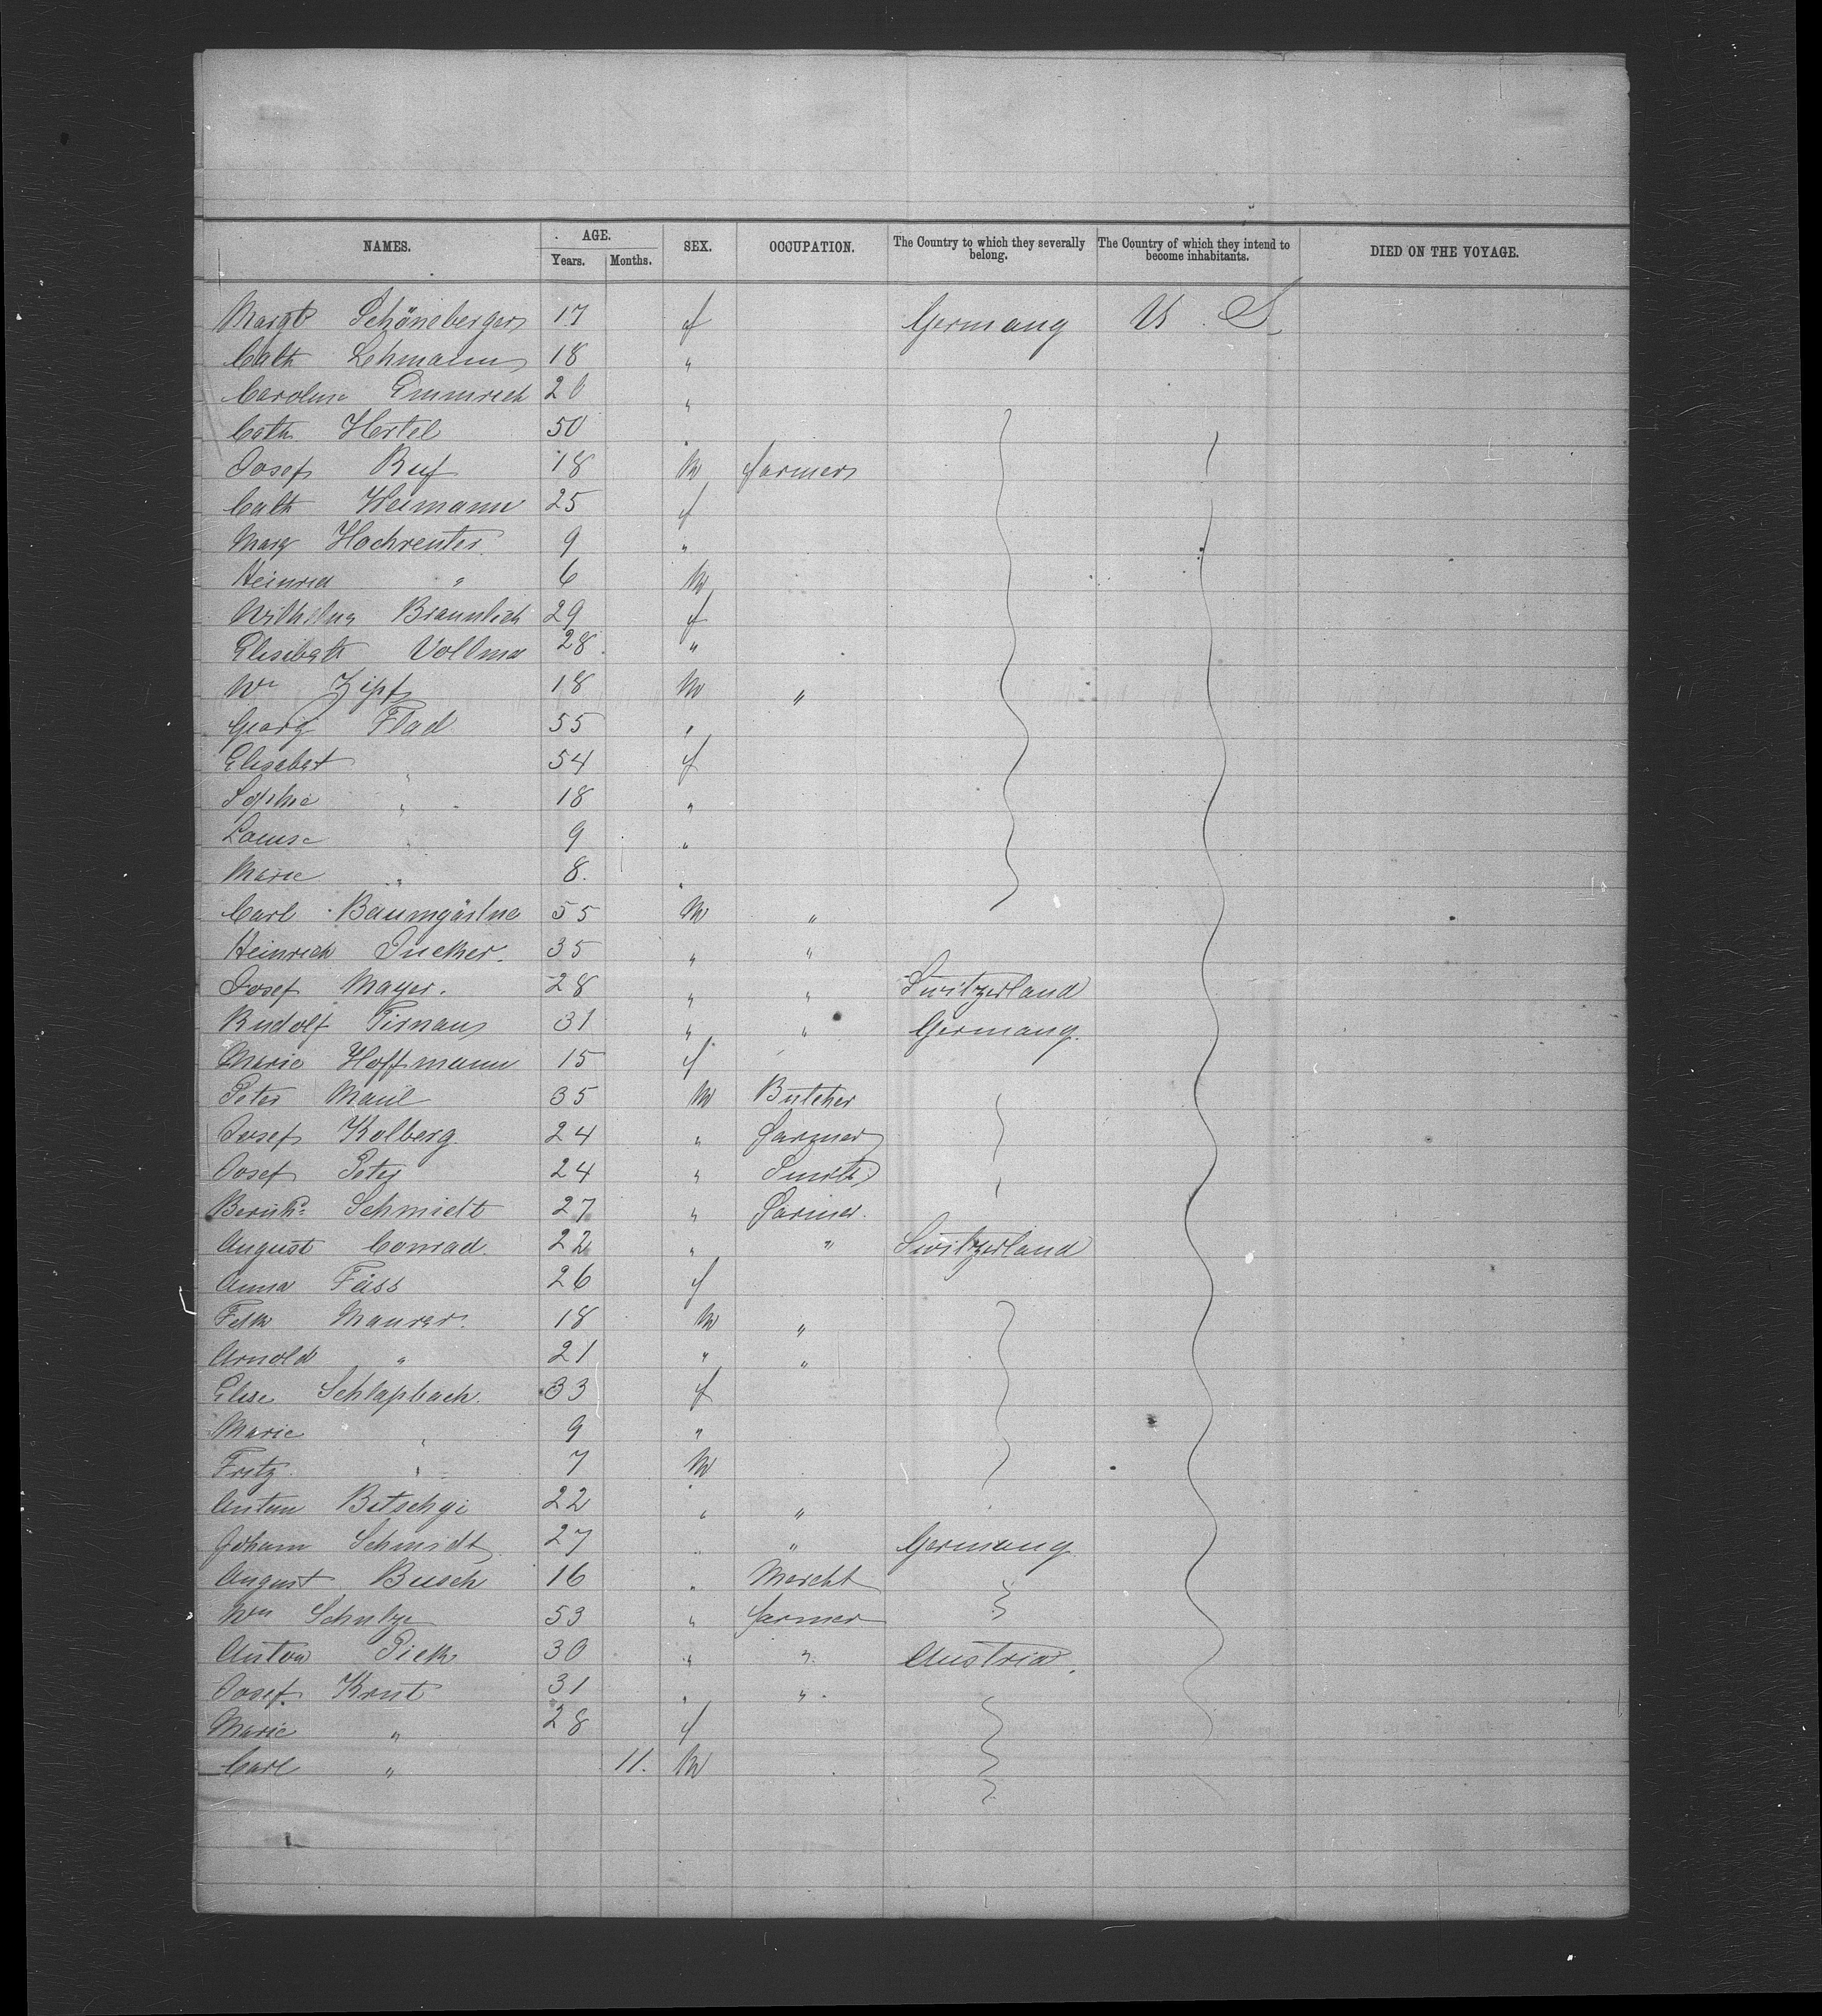 NAMES. AGE. SEX. OCCUPATION. The Country to which they severally belong. The Country of which they intend to become inhabitants. DIED ON THE VOYAGE.
Years. Months.
Margt Schöneberger 17 f Germany U. S
Cath Lehmann 18 "
Caroline Emmrich 20 "
Cath Hertel 50 "
Josef Ruf 18 M farmer
Cath Weimann 25 f
Marg Hochreuter 9 "
Heinrich " 6 M
Wilhelma Braunlich 29 f
Elisabeth Vollmer 28 "
Wm Zipf 18 M "
Georg Flad 55 "
Elisabet " 54 f
Sophie " 18 "
Louise " 9 "
Marie " 8. "
Carl Baumgärtner 55 M "
Heinrich Ducker. 35 " "
Josef Mayer. 28 " " Switzerland
Rudolf 31 " " Germany.
Marie Hoffmann 15 f
Peter Maul 35 M Butcher
Josef Kolberg 24 " farmer
Josef Peter 24 " Smith
Bernhd Schmidt 27 " farmer.
August Conrad 22 " " Switzerland
Anna Fäss 26 f
Felix Maurer. 18 M "
Arnold " 21 " "
Elise Schlapbach. 33 f
Marie " 9 "
Fritz " 7 M
Anton Betschgi 22 " "
Johann Schmidt 27 " " Germany
August Busch 16 " Mercht
Wm Schultze 53 " farmer
Anton Pick 30 " " Austria.
Josef Krut 31 " "
Marie " 28 f
Carl " 11. M